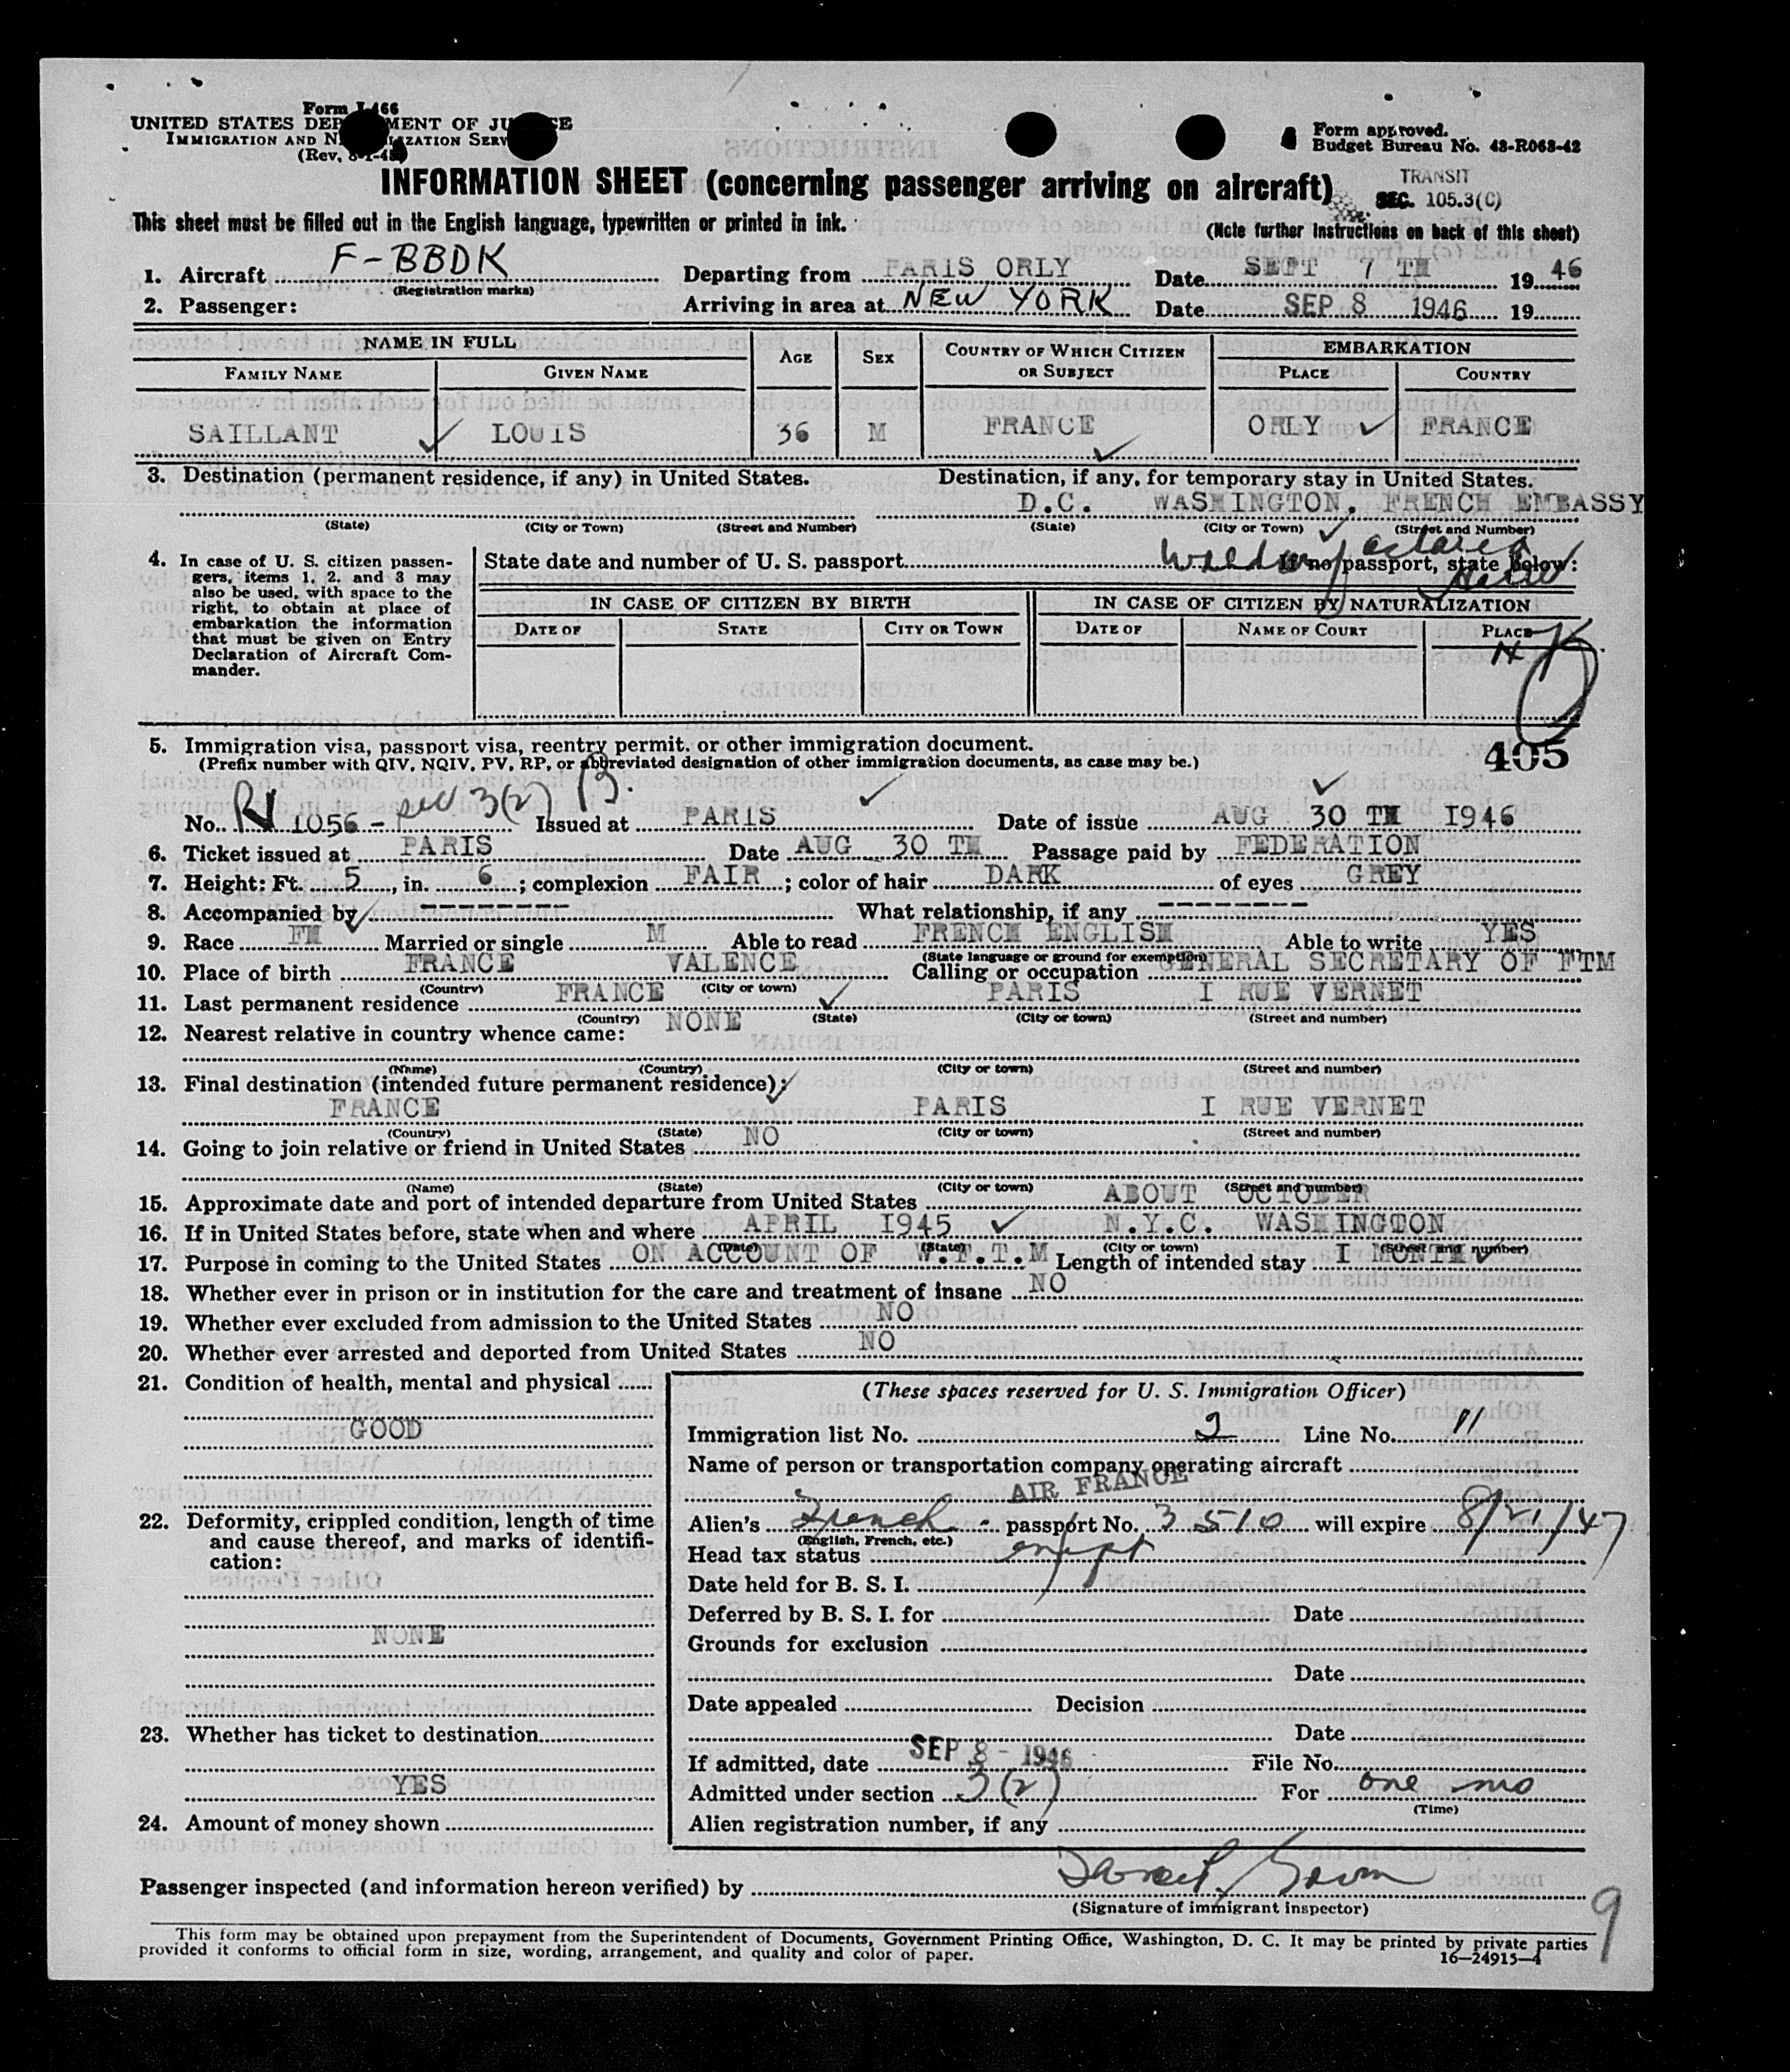 Form I-466
UNITED STATES DEPARTMENT OF JUSTICE
IMMIGRATION AND NATURALIZATION SERVICE
(Rev. 8-1-45)
Form approved.
Budget Bureau No. 43-R068-42
INFORMATION SHEET (concerning passenger arriving on aircraft)
TRANSIT
SEC. 105.3(C)
This sheet must be filled out in the English language, typewritten or printed in ink.
(Note further instructions on back of this sheet)
1. Aircraft F-BBDK Departing from PARIS ORLY Date SEPT 7 TH 1946
(Registration marks)
2. Passenger: Arriving in area at NEW YORK Date SEP 8 1946 19
NAME IN FULL AGE SEX COUNTRY OF WHICH CITIZEN OR SUBJECT EMBARKATION
FAMILY NAME GIVEN NAME PLACE COUNTRY
SAILLANT LOUIS 36 M FRANCE ORLY FRANCE
3. Destination (permanent residence, if any) in United States. Destination, if any, for temporary stay in United States.
D.C. WASHINGTON. FRENCH EMBASSY
(State) (City or Town) (Street and Number) (State) (City or Town) (Street and Number)
4. In case of U. S. citizen passengers, items 1, 2, and 3 may also be used, with space to the right, to obtain at place of embarkation the information that must be given on Entry Declaration of Aircraft Commander.
State date and number of U. S. passport If no passport, state below:
IN CASE OF CITIZEN BY BIRTH IN CASE OF CITIZEN BY NATURALIZATION
DATE OF STATE CITY OR TOWN DATE OF NAME OF COURT PLACE
405
5. Immigration visa, passport visa, reentry permit, or other immigration document.
(Prefix number with QIV, NQIV, PV, RP, or abbreviated designation of other immigration documents, as case may be.)
No. 1056 - sec 3(2) B. Issued at PARIS Date of issue AUG 30 TH 1946
6. Ticket issued at PARIS Date AUG 30 TH Passage paid by FEDERATION
7. Height: Ft. 5, in. 6; complexion FAIR; color of hair DARK of eyes GREY
8. Accompanied by --------- What relationship, if any ---------
9. Race FH Married or single M Able to read FRENCH ENGLISH Able to write YES
(State language or ground for exemption)
10. Place of birth FRANCE VALENCE Calling or occupation GENERAL SECRETARY OF FTM
(Country) (City or town)
11. Last permanent residence FRANCE PARIS I RUE VERNET
(Country) (State) (City or town) (Street and number)
12. Nearest relative in country whence came: NONE
(Name) (Country) (City or town) (Street and number)
13. Final destination (intended future permanent residence):
FRANCE PARIS I RUE VERNET
(Country) (State) (City or town) (Street and number)
14. Going to join relative or friend in United States NO
(Name) (State) (City or town) (Street and number)
15. Approximate date and port of intended departure from United States ABOUT OCTOBER
16. If in United States before, state when and where APRIL 1945 N.Y.C. WASHINGTON
(Date) (State) (City or town) (Street and number)
17. Purpose in coming to the United States ON ACCOUNT OF W.F.T.M Length of intended stay I MONTH
18. Whether ever in prison or in institution for the care and treatment of insane NO
19. Whether ever excluded from admission to the United States NO
20. Whether ever arrested and deported from United States NO
21. Condition of health, mental and physical
GOOD
22. Deformity, crippled condition, length of time and cause thereof, and marks of identification:
NONE
23. Whether has ticket to destination
YES
24. Amount of money shown
(These spaces reserved for U. S. Immigration Officer)
Immigration list No. 2 Line No. 11
Name of person or transportation company operating aircraft
AIR FRANCE
Alien's French - passport No. 3510 will expire 8/21/47
(English, French, etc.)
Head tax status
Date held for B. S. I.
Deferred by B. S. I. for Date
Grounds for exclusion
Date
Date appealed Decision
Date
If admitted, date SEP 8 - 1946 File No.
Admitted under section 3(2) For one mo
(Time)
Alien registration number, if any
Passenger inspected (and information hereon verified) by
(Signature of immigrant inspector)
9
This form may be obtained upon prepayment from the Superintendent of Documents, Government Printing Office, Washington, D. C. It may be printed by private parties
provided it conforms to official form in size, wording, arrangement, and quality and color of paper.
16—24915-4